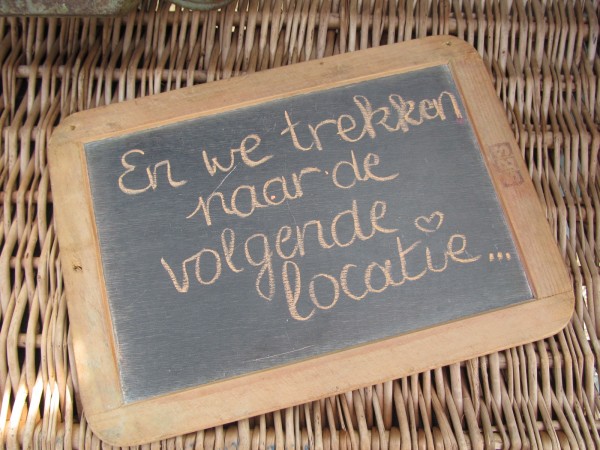 En we trekken
naar de
volgende
locatie...